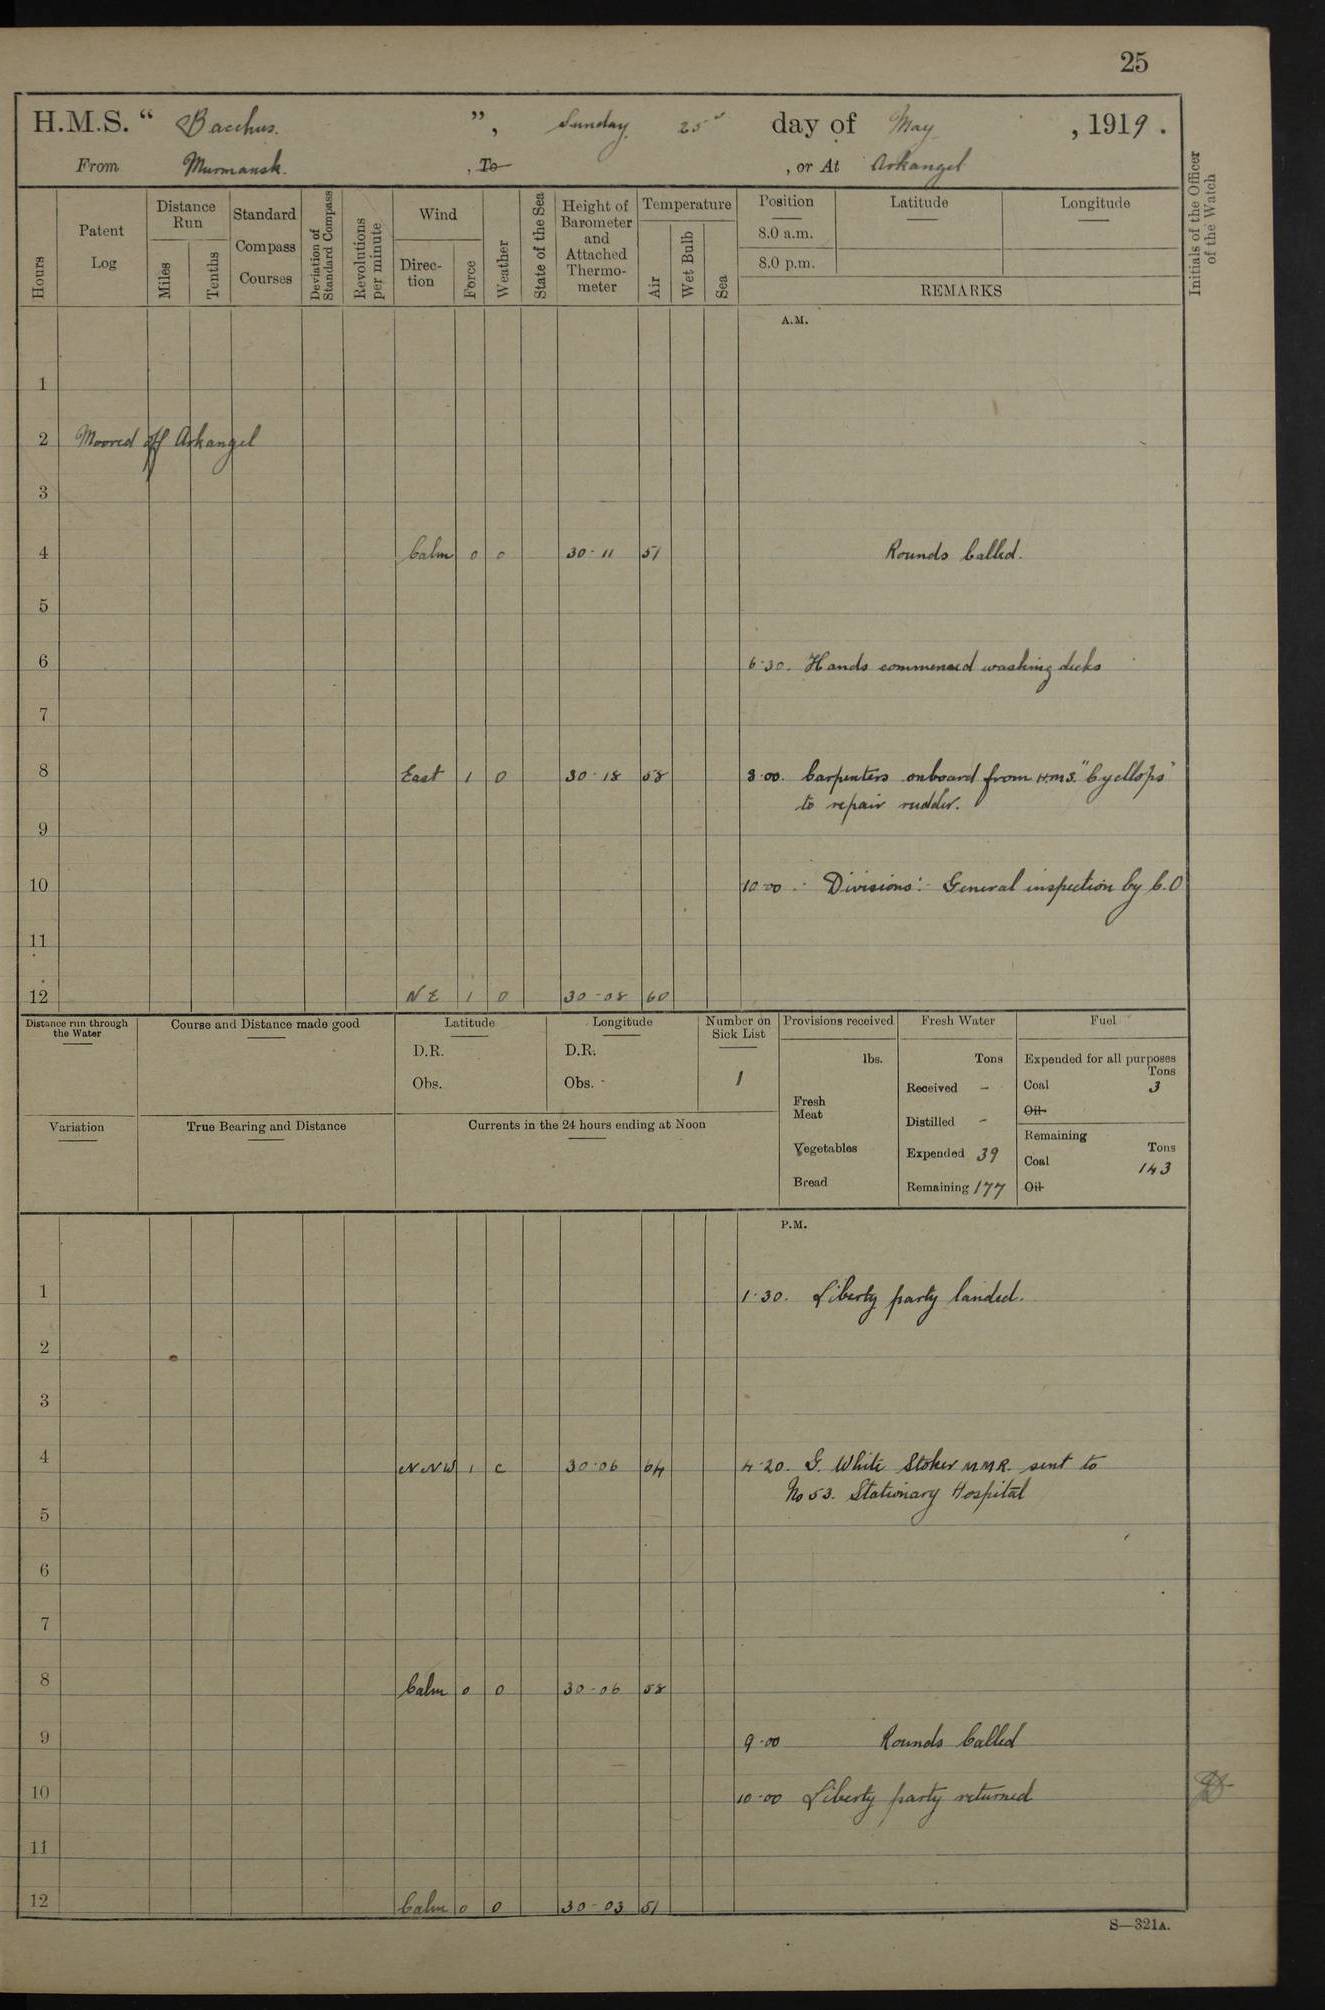 25
H.M.S. " Bacchus. ", Sunday 25 day of May , 1919.
From Murmansk. , To , or At Arkangel
Hours
Patent Log
Distance Run
Miles
Tenths
Standard Compass Courses
Deviation of Standard Compass
Revolutions per minute
Wind
Direction
Force
Weather
State of the Sea
Height of Barometer and Attached Thermometer
Temperature
Air
Wet Bulb
Sea
Position
8.0 a.m.
8.0 p.m.
Latitude
Longitude
REMARKS
Initials of the Officer of the Watch
A.M.
1
2 Moored off Arkangel
3
4 Calm 0 0 30-11 51 Rounds Called.
5
6 6-30. Hands commenced washing decks
7
8 East 1 0 30-18 58 8-00. Carpenters onboard from H.M.S. "Cycllops"
to repair rudder.
9
10 10-00 Divisions:- General inspection by C.O
11
12 NE 1 0 30-08 60
Distance run through the Water
Course and Distance made good
Latitude
D.R.
Obs.
Longitude
D.R.
Obs.
Number on Sick List
1
Provisions received
lbs.
Fresh Meat
Vegetables
Bread
Fresh Water
Tons
Received -
Distilled -
Expended 39
Remaining 177
Fuel
Expended for all purposes
Tons
Coal 3
Oil
Remaining
Tons
Coal 143
Oil
Variation
True Bearing and Distance
Currents in the 24 hours ending at Noon
P.M.
1 1-30. Liberty party landed.
2
3
4 NNW 1 c 30-06 64 4-20. G. White Stoker M.M.R. sent to
No 53. Stationary Hospital
5
6
7
8 Calm 0 0 30-06 58
9 9-00 Rounds Called
10 10-00 Liberty party returned
11
12 Calm 0 0 30-03 51
S—321A.